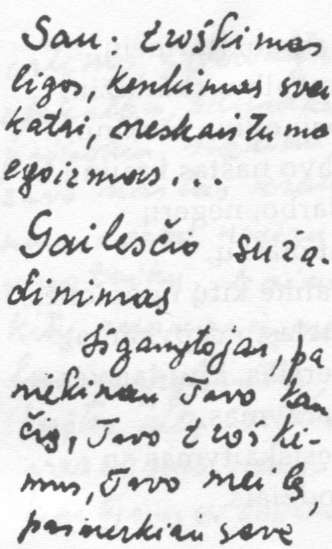 Sau: troškimas
ligos, kenkimas svei
katai, neskaitumo
egoizmas...
Gailesčio suža-
dinimas
Išganytojau, pa
niekinau Tavo kan
čią, Tavo troški-
mus, Tavo meilę,
pasmerkiau save